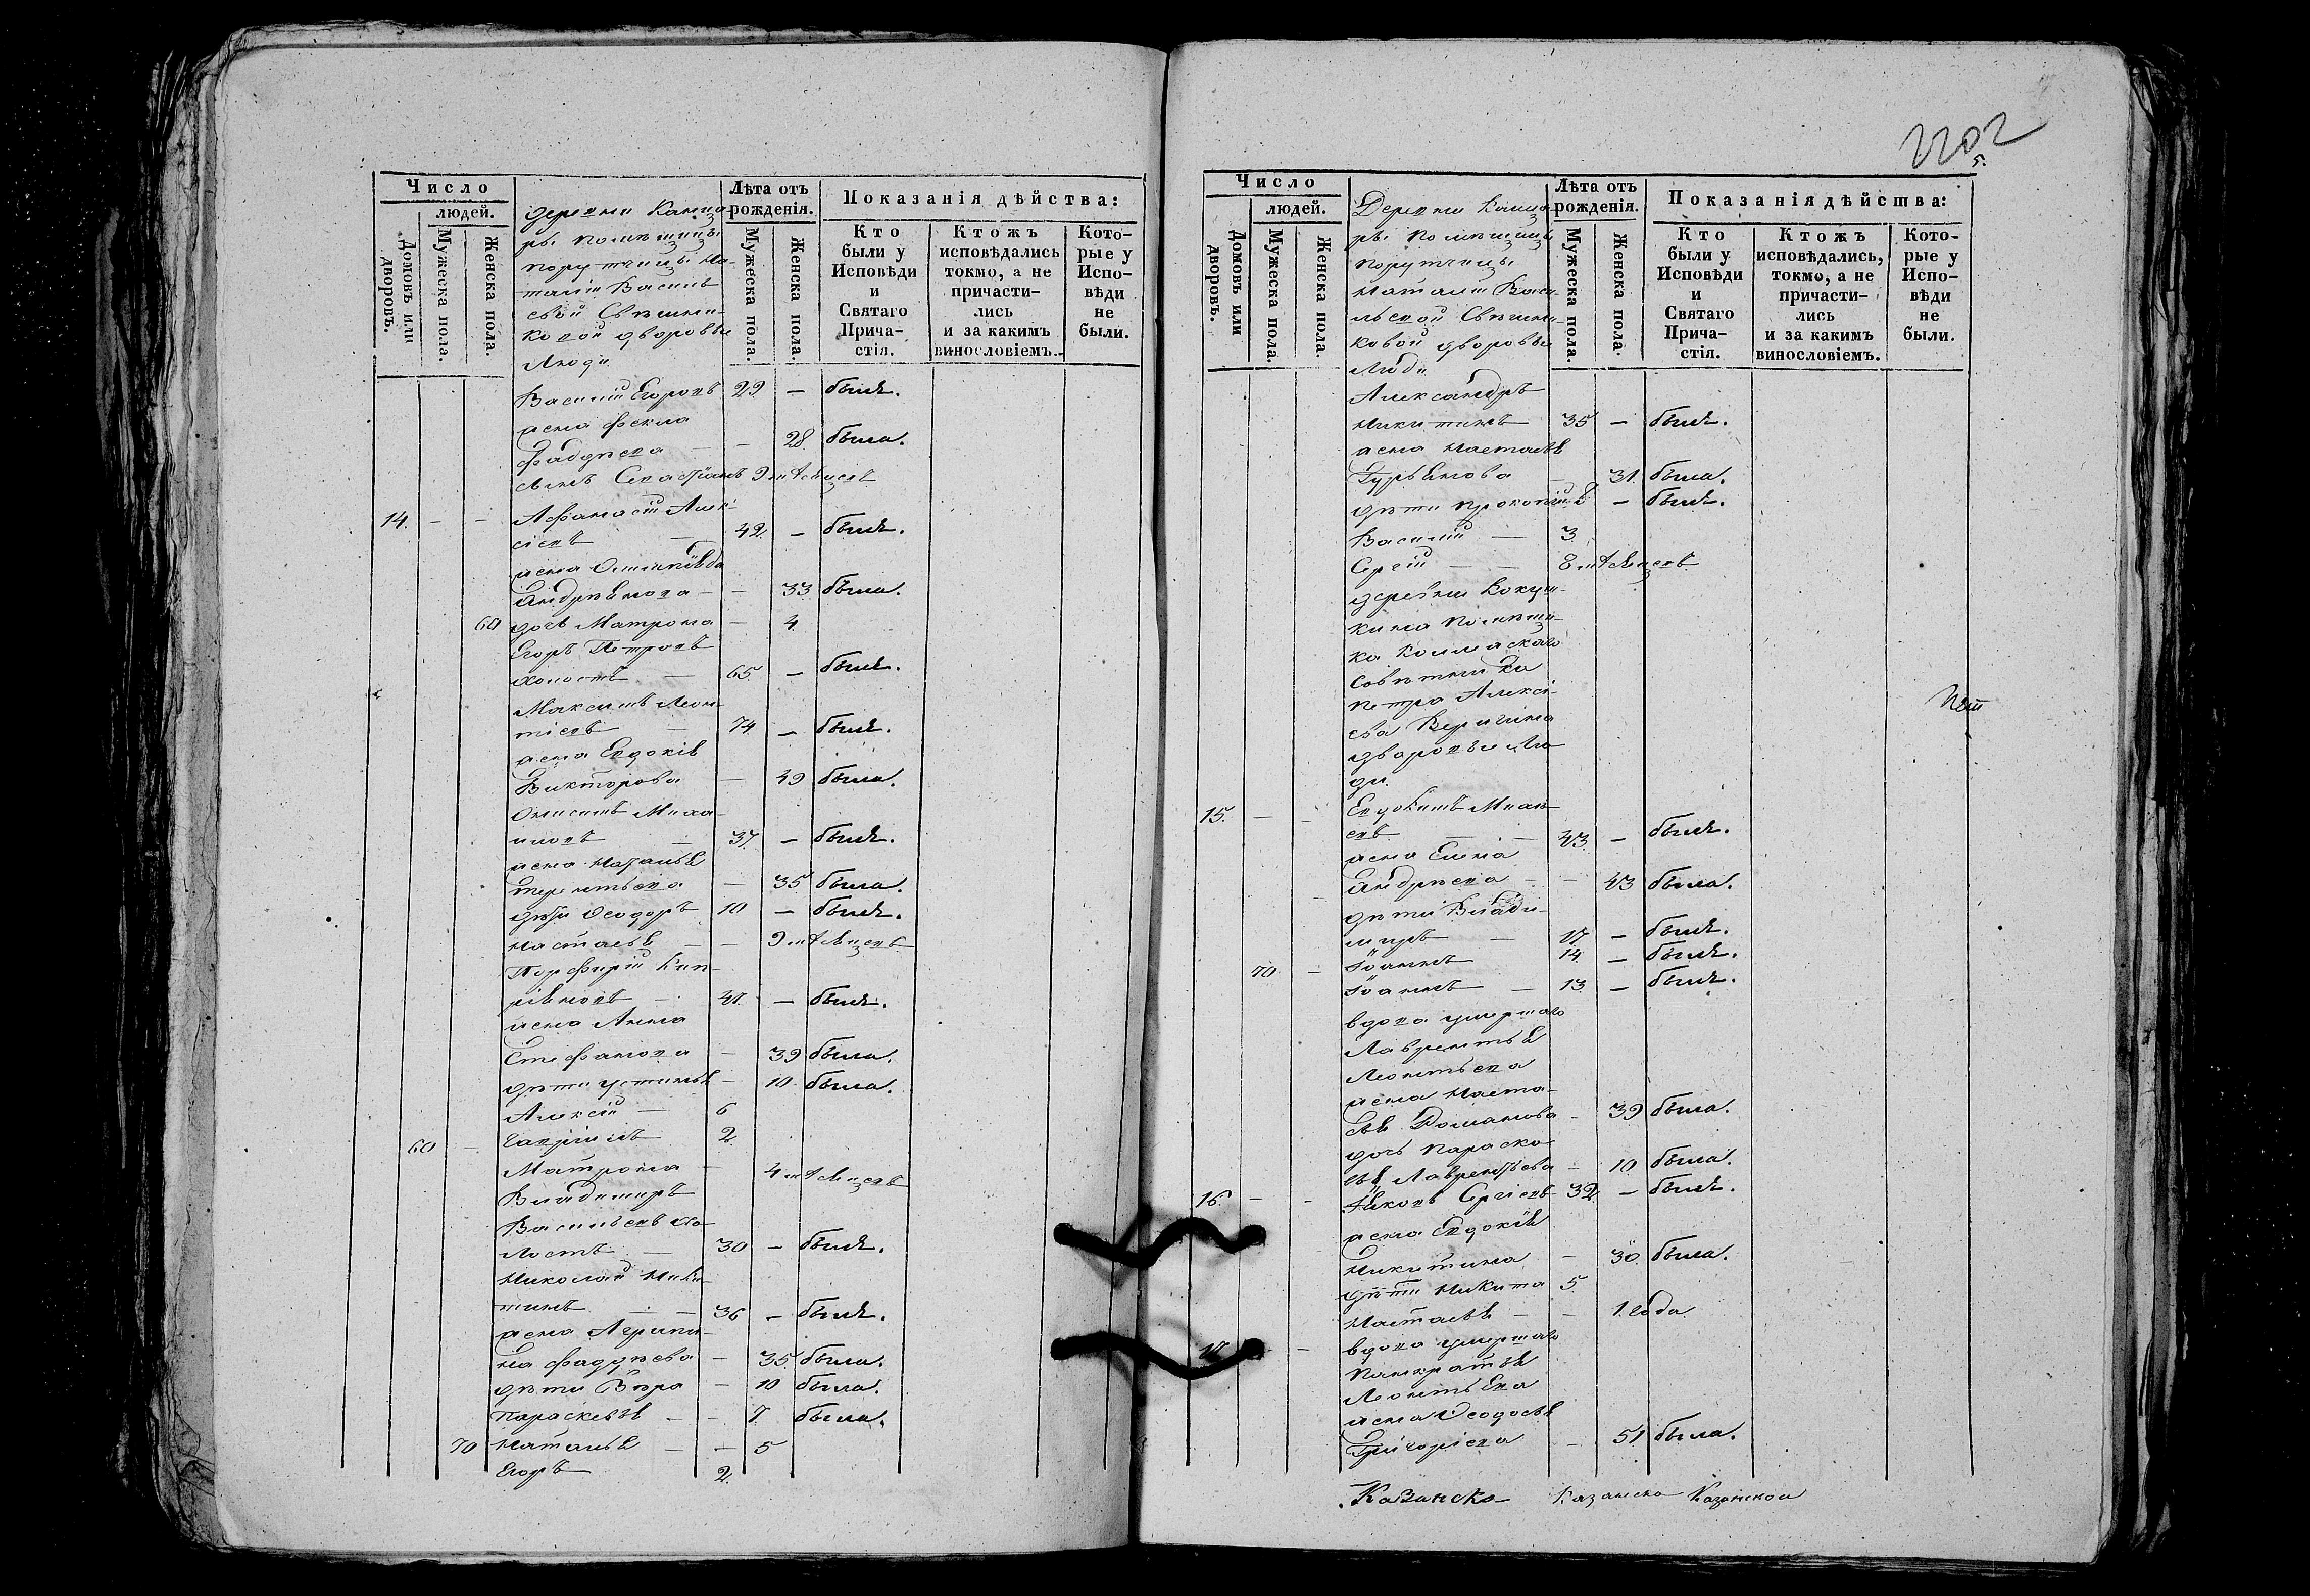 Число
людей.
Домовъ или дворовъ.
Мужеска пола.
Женска пола.
деревни Канца-
ры помѣщицы
порутчицы На-
таліи Василь
евой Свѣшни-
ковой дворовые
Люди
Лѣта отъ рожденія.
Мужеска пола.
Женска пола.
Показанія дѣйства:
Кто были у Исповѣди и Святаго Прича-стія.
Ктожъ исповѣдались токмо, а не причасти-лись и за какимъ винословіемъ.
Кото-рые у Испо-вѣди не были.
Василій Егоровъ 29 — былъ.
жена Фекла
Фадѣева — 28 была.
сынъ 9 мѣсяцевъ
14. — — Афанасій Алек-
сіевъ — 42 — былъ.
жена
Андреянова — — 33 была.
60 дочь Матрона — 4
Егоръ Петровъ
холостъ — 65 — былъ.
Максимъ Леон-
тіевъ — 74 — былъ.
жена Евдокія
Викторова — 49 была.
Онисимъ Миха-
иловъ — 37. — былъ.
жена Наталья
Терентьева — 35 была.
дѣти Ѳеодоръ 10 — былъ.
Настасья — — 9 мѣсяцевъ
Порфирій Кип-
ріяновъ — 41. — былъ.
жена Анна
Стефанова — 39 была.
дѣти Устинья — 10 была.
Алексій — 6
60 — Гавріилъ 2
Матрона — 4 мѣсяцевъ
Владимиръ
Васильевъ хо-
лостъ — 30 — былъ.
Николай Ники-
тинъ — — 36 — былъ.
жена Агрипи-
на Фаддѣева — 35 была.
дѣти Вѣра — 10 была.
Параскевья — — 7. была.
70 Наталья — — 5
Егоръ 2
2202
5.
Число
людей.
Домовъ или дворовъ.
Мужеска пола.
Женска пола.
Деревни Канца-
ры Помѣщицы
порутчицы
Наталіи Васи-
льевой Свѣшни-
ковой дворовые
Люди
Лѣта отъ рожденія.
Мужеска пола.
Женска пола.
Показанія дѣйства:
Кто были у Исповѣди и Святаго Прича-стія.
Ктожъ исповѣдались, токмо, а не причасти-лись и за какимъ винословіемъ.
Кото-рые у Испо-вѣди не были.
Александръ
Никитинъ 35 — былъ.
жена Настасья
Гурьянова — 31. была.
дѣти Прокопій — былъ.
Василій — 3
Сергій — — 8 мѣсяцевъ
деревни Кокуш-
кина помѣщи-
ка Коллежскаго
Совѣтника
Петра Алексі-
ева Веригина
дворовые Лю
ди.
15. — — Евдокимъ
евъ — — 43. — былъ.
жена Елена
Андреева — — 43 была.
дѣти Влади-
миръ — 17 — былъ.
70 — Іоаннъ 14. — былъ.
Іоаннъ — 13. — былъ.
вдова умершаго
Лаврентья
Леонтьева
жена Наста-
сья Романова — 39 была.
дочь Параско
вья Лаврентьева — 10. была.
16. — — Яковъ Сергіевъ 32 — былъ.
жена Евдокія
Никитина — 30. была.
дѣти Никита 5.
Настасья — — 1. года
17 — вдова умершаго
Панкратья
Леонтьева
жена Ѳеодосья
Григоріева — 51. была.
Казанско Казанско Казанской